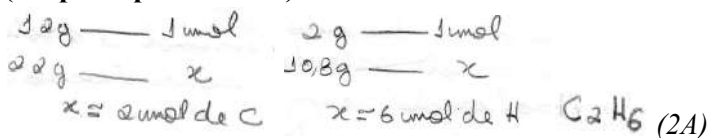 12g —— 1 mol 2 g —— 1 mol
22g —— x 10,8g —— x
x ≅ 2 mol de C x ≅ 6 mol de H C2H6 (2A)